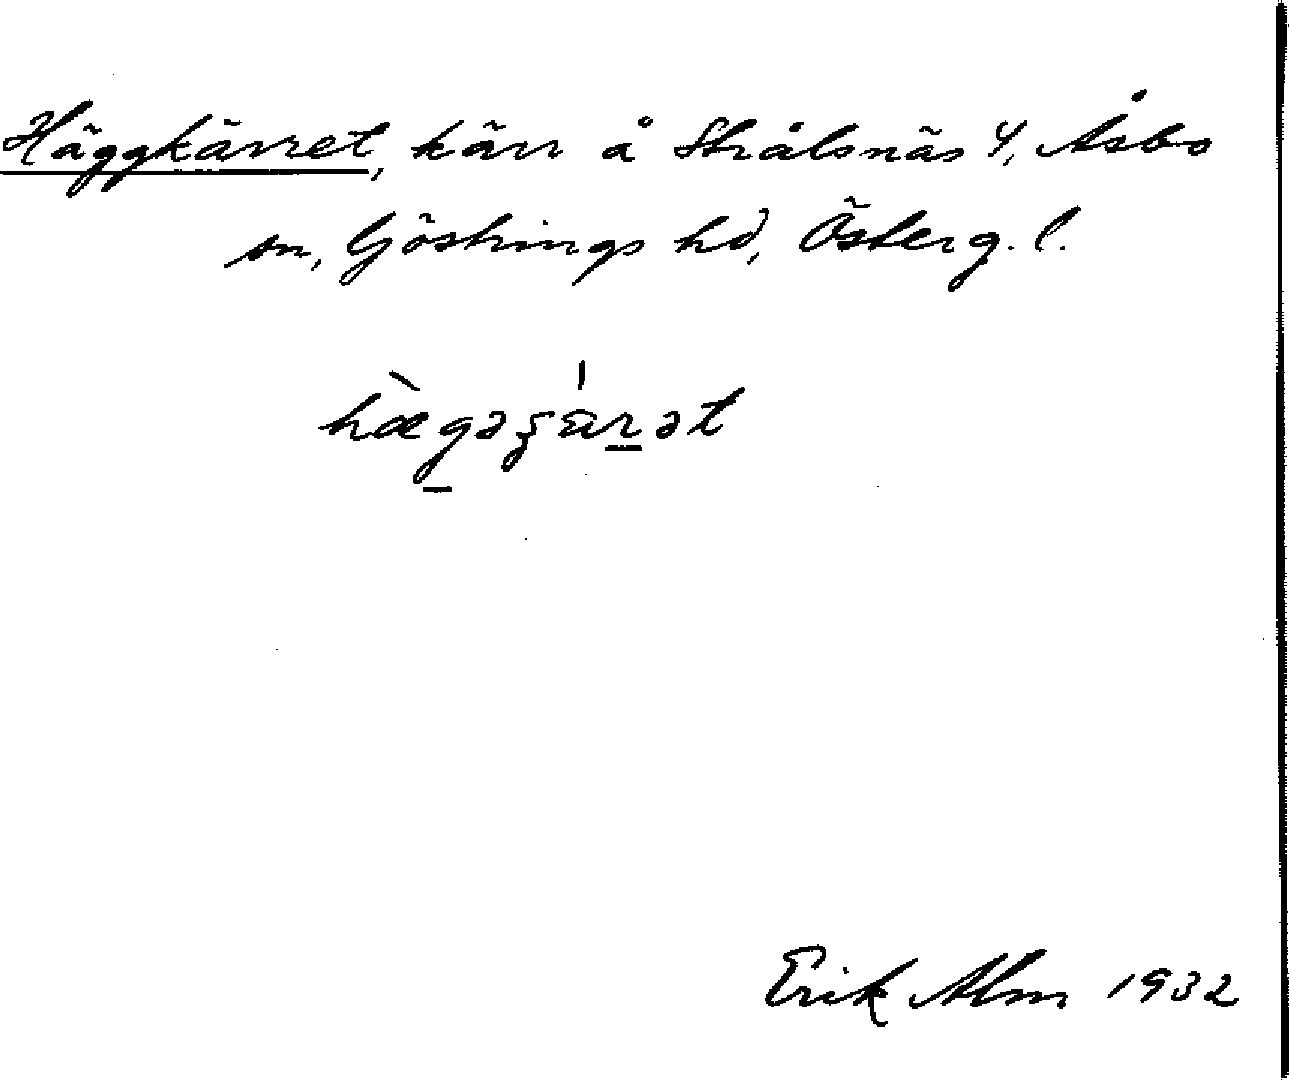 Häggkärret, kärr å Strålsnäs 4, Åsbo
sn, Göstrings hd, Österg. l.
Erik Alm 1932